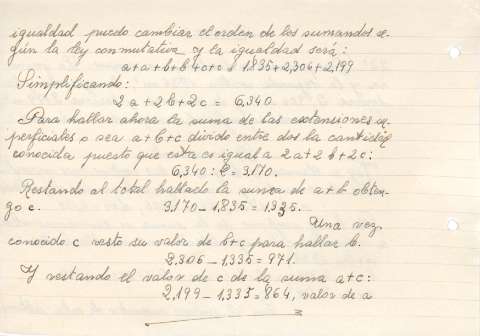 igualdad puedo cambiar el orden de los sumandos se-
gún la ley conmutativa y la igualdad será:
a+a+b+b+c+c = 1.835+2,306+2,199
Simplificando:
2a+2b+2c = 6,340.
Para hallar ahora la suma de las extensiones su-
perficiales o sea a+b+c divido entre dos la cantidad
conocida puesto que esta es igual a 2a+2b+2c:
6,340:2=3,170.
Restando al total hallado la suma de a+b obten-
go c. 3,170-1,835=1335.
Una vez
conocido c resto su valor de b+c para hallar b.
2,306-1,335=971.
Y restando el valor de c de la suma a+c:
2,199-1,335=864, valor de a